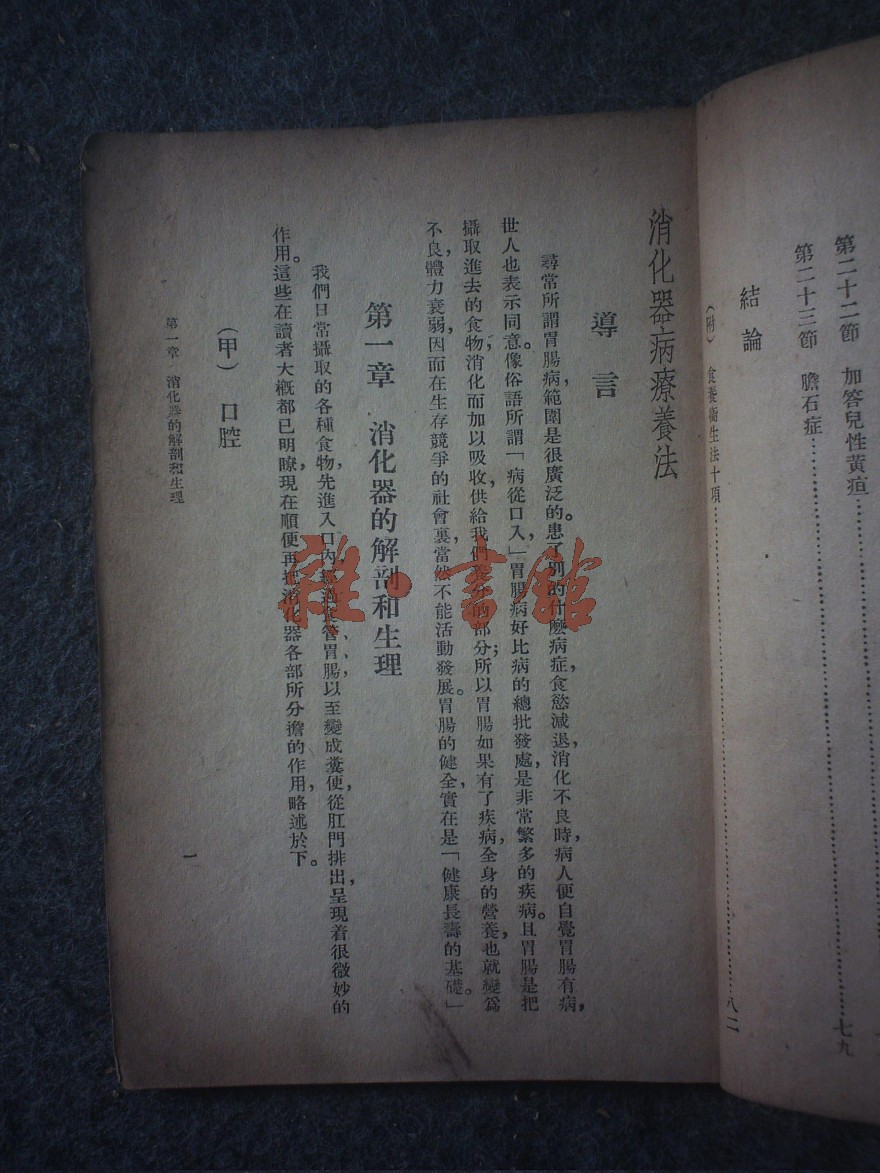 第二十二節　加答兒性黃疸……七九
第二十三節　膽石症……
結論
（附）　食養衛生法十項……八二
消化器病療養法
導言
尋常所謂胃腸病，範圍是很廣泛的。患了別的什麽病症，食慾減退，消化不良時，病人便自覺胃腸有病，
世人也表示同意。像俗語所謂「病從口入，」胃腸病好比病的總批發處，是非常繁多的疾病。且胃腸是把
攝取進去的食物，消化而加以吸收，供給我們養分的部分；所以胃腸如果有了疾病，全身的營養，也就變爲
不良，體力衰弱，因而在生存競爭的社會裏，當然不能活動發展。胃腸的健全，實在是「健康長壽的基礎。」
第一章　消化器的解剖和生理
我們日常攝取的各種食物，先進入口內，經過食管、胃、腸，以至變成糞便，從肛門排出，呈現着很微妙的
作用。這些在讀者大概都已明瞭，現在順便再把消化器各部所分擔的作用，略述於下。
（甲）　口腔
第一章　消化器的解剖和生理
一
雜·書館